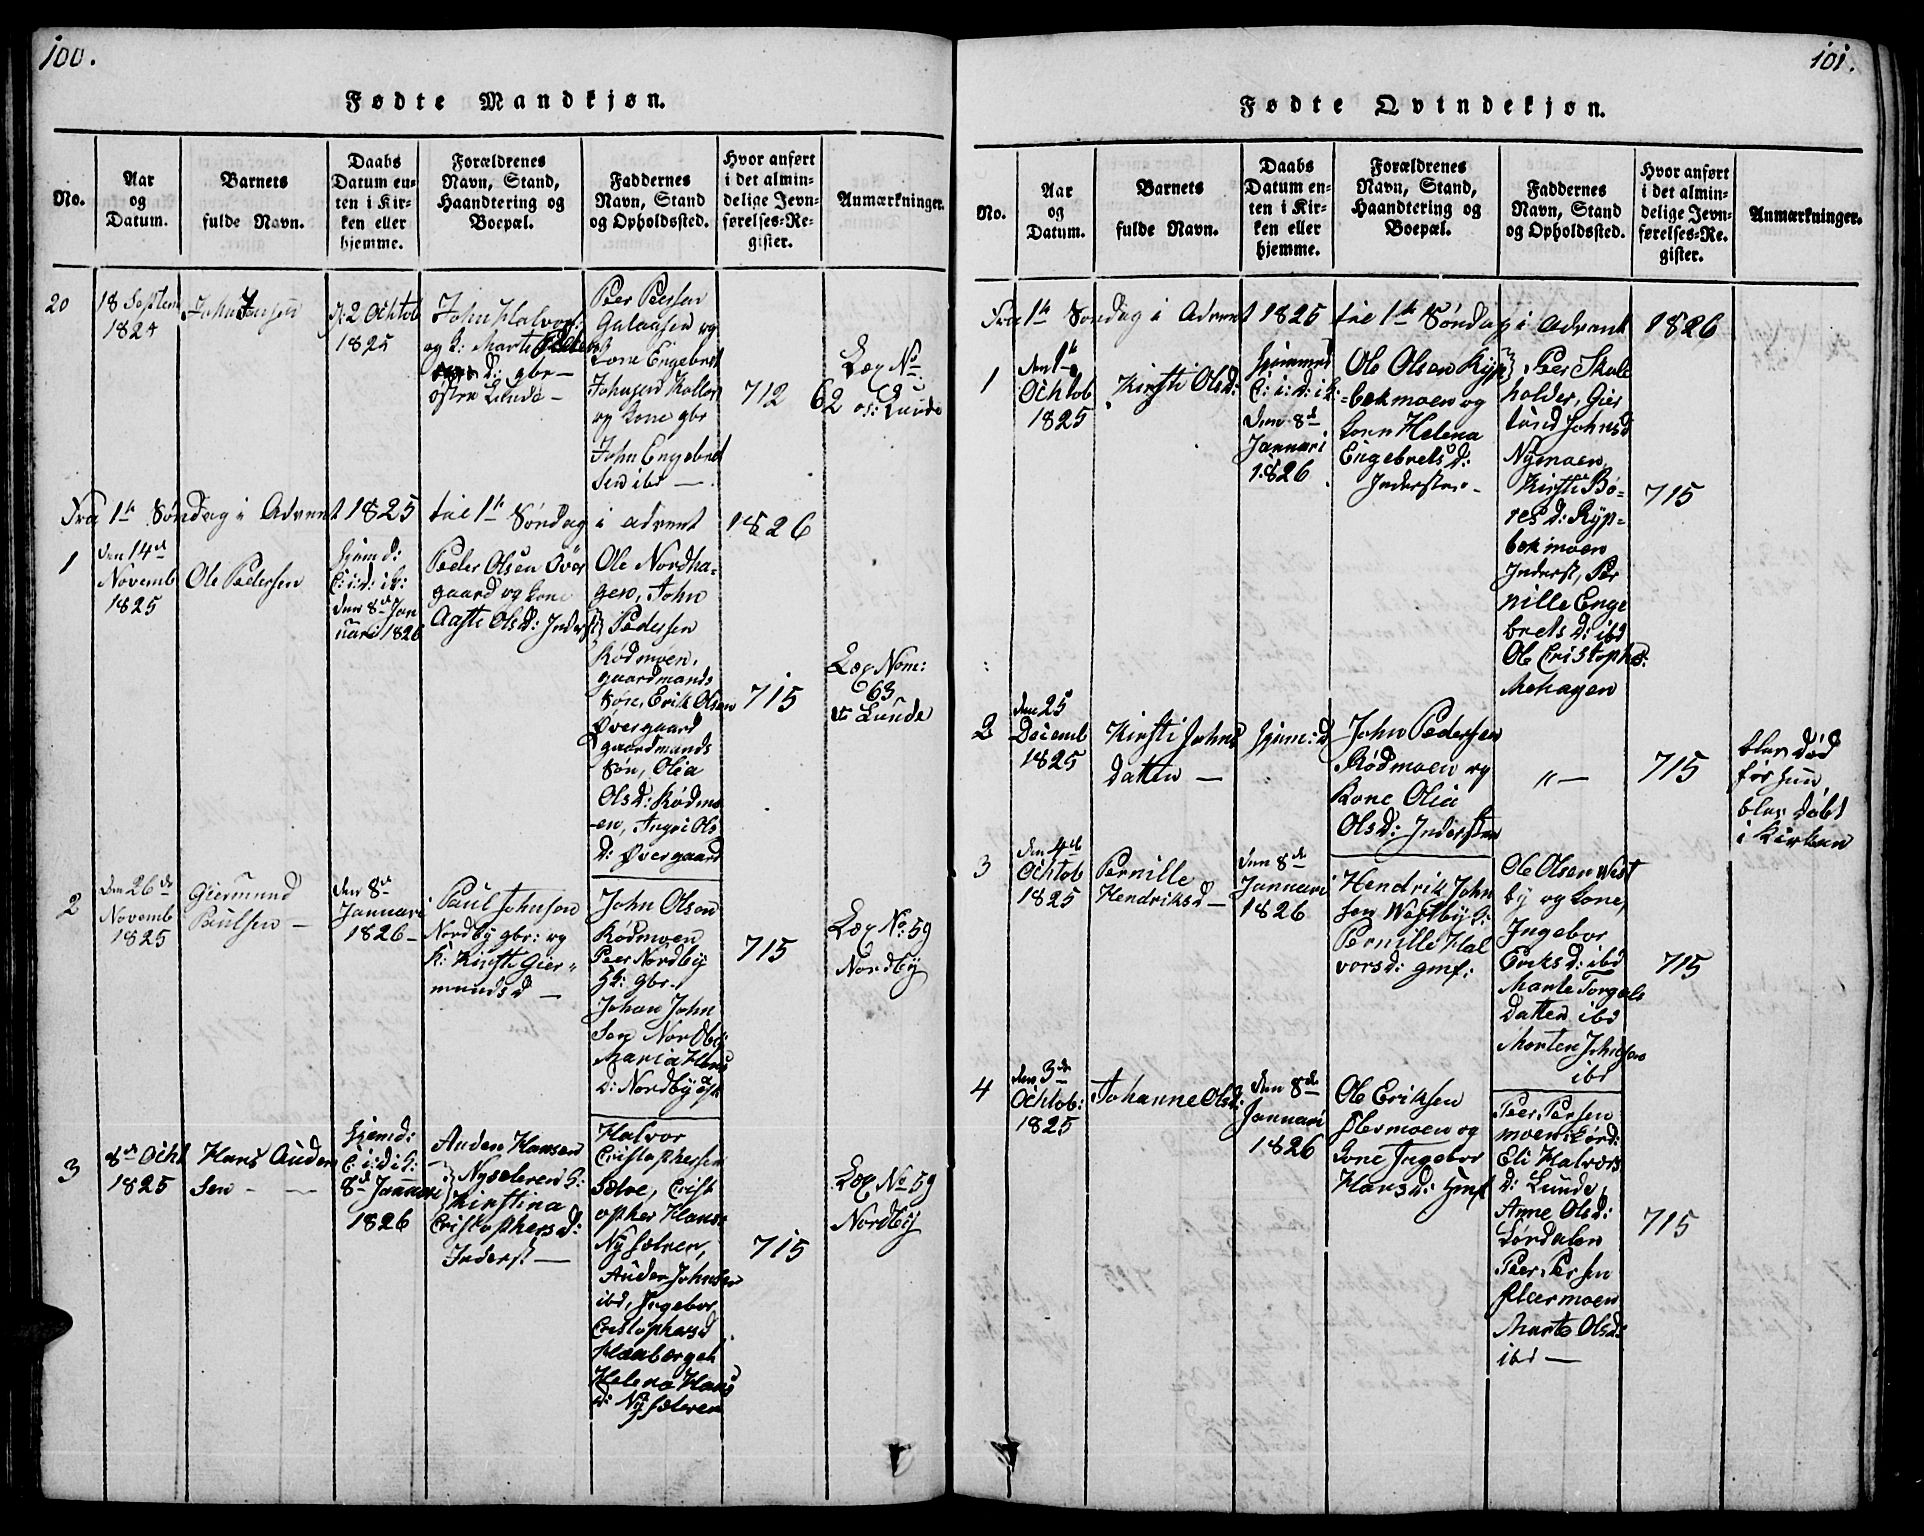 100.
Fødte Mandkjøn.
No.
Aar
og
Datum.
Barnets
fulde Navn.
Daabs
Datum en-
ten i Kir-
ken eller
hjemme.
Forældrenes
Navn, Stand,
Haandtering og
Boepæl.
Faddernes
Navn, Stand
og Opholdssted.
Hvor anført
i det almin-
delige Jevn-
førelses-Re-
gister.
Anmærkninger.
20
18 Septem
1825
John Johnsen
d: 2 Ochtob
1825
John Halvors:
og k: Marte Peders
D: gbr
østen Lunde
Peer Peersen
Galaasen og
kone Engebret
Johnsen
og kone gbr
John Engebret
sen ibd
712
Læg No
62 øs: Lunde
Fra 1te Søndag i Advent 1825 til 1te Søndag i advent 1826
1
den 14de
Novemb
1825
Ole Pedersen
hjem d:
C: i: d: i k:
den 8de Jan
uari 1826
Peder Olsen Over
gaard og kone
Aaste Olsd: Inderst
Ole Nordha-
gen, John
Pedersen
Rødmoen,
gaardmands
søn, Erik Olsen
Øvergaard
gaardmands
søn, Olia
Olsd: Rødmo
-en, Ingri Ols
d: Øvergaard
715
Læg Nom:
63
v: Lunde
2
den 26de
Novemb
1825
Giermund
Paulsen
den 8de
Januari
1826
Paul Johnsen
Nordby gbr: og
k: Kirsti Gier
munds d
John Olsen
Rødmoen
Peer Nordby
gbr.
Johan John
sen Nordby
Maria Hans
d: Nordby
715
Læg No: 59
Nordby
3
8de Ocht
1825
Hans Auden
sen
hjem d:
C: i: d: i k:
8de Januari
1826
Auden Hansen
Nysæteren k:
Kirstina
Cristophers d:
Inderst
Halvor
Cristophersen
Sælve, Crist
opher Hanse
Nysætren,
Auden Johnsen
ibd, Ingebor
Cristophersd
Haaberget
Helena Hans
d: Nysæteren
715
Læg No 59
Nordby
101.
Fødte Qvindekjøn.
No.
Aar
og
Datum.
Barnets
fulde Navn.
Daabs
Datum en-
ten i Kir-
ken eller
hjemme.
Forældrenes
Navn, Stand,
Haandtering og
Boepæl.
Faddernes
Navn, Stand
og Opholdssted.
Hvor anført
i det almin-
delige Jevn-
førelses-Re-
gister.
Anmærkninger.
Fra 1te Søndag i Advent 1825 til 1te Søndag i Advent 1826
1
den 1te
Ochtob
1825
Kirsti Olsd:
hjemme d
C: i: d: i k:
den 8de
Januari
1826
Ole Olsen Ryp
-bekmoen og
kone Helena
Engebrets d:
Inderster
Peer Skole
holder, Gier
tund Johnsd
Nymoen
Kirsti Bø-
res d: Ryp-
bekmoen
Inderst, Per
nille Enge
brets d: ibd
Ole Cristophs:
Mehagen
715
2
den 25
Decemb
1825
Kirsti Johns
datter
hjem: d
John Pedersen
Rødmoen og
kone Olia
Olsd: Indersten
"
715
blev død
før hun
blev døbt
i kirken
3
den 4de
Ochtob
1825
Pernille
Hendriksd
den 8de
Januari
1826
Hendrik John
sen Westby k:
Pernille Hal
vorsd: gmf:
Ole Olsen West
by og kone,
Ingebor
Eriksd: ibd
Marte Torgals
datter ibd
Morten Johnsen
ibd
715
4
den 3de
Ochtob:
1825
Johanne Olsd:
den 8de
Januari
1826
Ole Eriksen
Flermoen og
kone Ingebor
Hans d: gmf
Peer Persen
moen
Eli Halvors
d: Lunde,
Anne Olsd:
Lørdalen
Peer Persen
Flermoen
Marte Olsd:
ibd
715